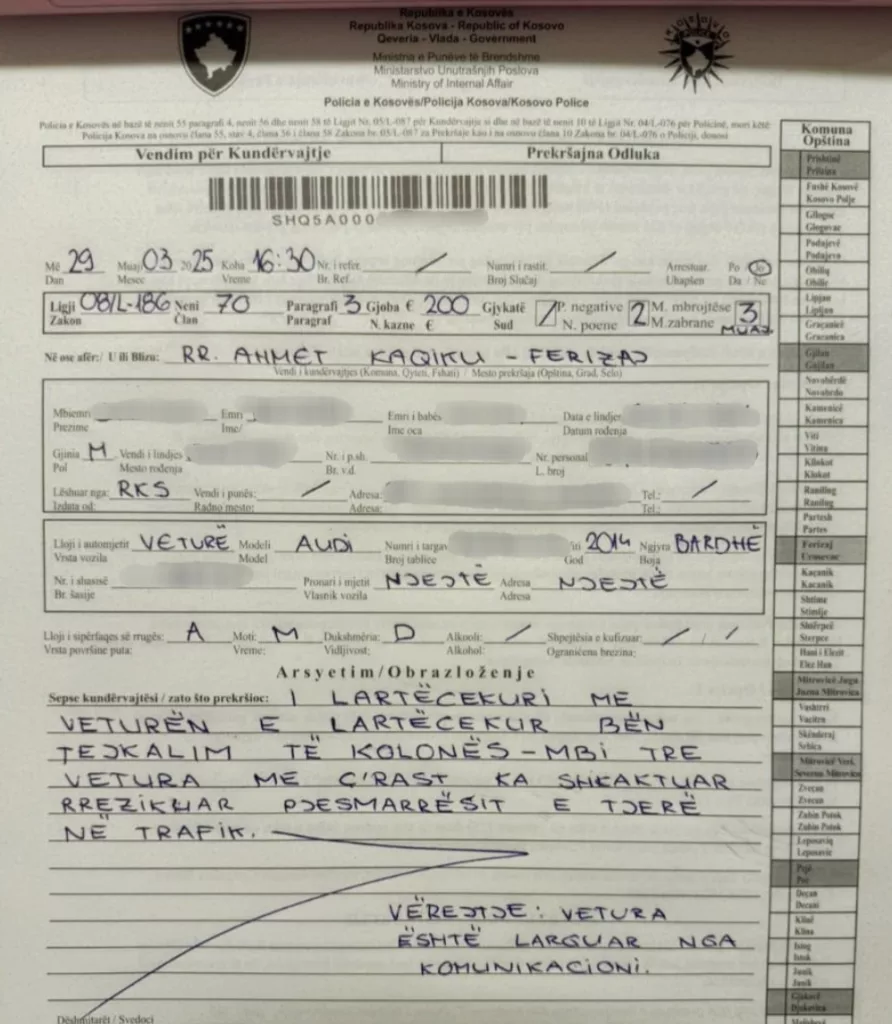 Republika e Kosovës
Republika Kosova - Republic of Kosovo
Qeveria - Vlada - Government
Ministria e Punëve të Brendshme
Ministarstvo Unutrašnjih Poslova
Ministry of Internal Affair
Policia e Kosovës/Policija Kosova/Kosovo Police
Policia e Kosovës në bazë të nenit 55 paragrafi 4, nenit 56 dhe nenit 58 të Ligjit Nr. 05/L-087 për Kundërvajtje si dhe në bazë të nenit 10 të Ligjit Nr. 04/L-076 për Policinë, mori këtë:
Policija Kosova na osnovu člana 55, stav 4, člana 56 i člana 58 Zakona br. 05/L-087 za Prekršaje kao i na osnovu člana 10 Zakona br. 04/L-076 o Policiji, donosi
Vendim për Kundërvajtje Prekršajna Odluka
SHQ5A000
Më 29 Muaj 03 2025 Koha 16:30 Nr. i refer. / Numri i rastit / Arrestuar Po Jo
Dan Mesec Vreme Br. Ref. Broj Slučaj Uhapšen Da / Ne
Ligji 08/L-186 Neni 70 Paragrafi 3 Gjoba € 200 Gjykatë / P. negative 2 M. mbrojtëse 3
Zakon Član Paragraf N. kazne € Sud N. poene M.zabrane MUAJ
Në ose afër:/ U ili Blizu: RR. AHMET KAQIKU - FERIZAJ
Vendi i kundërvajtjes (Komuna, Qyteti, Fshati) / Mesto prekršaja (Opština, Grad, Selo)
Mbiemri Emri Emri i babës Data e lindjes
Prezime Ime/ Ime oca Datum rođenja
Gjinia M Vendi i lindjes Nr. i p.sh. Nr. personal
Pol Mesto rođenja Br. v.d. L. broj
Lëshuar nga: RKS Vendi i punës: / Adresa: Tel.: /
Izdata od: Radno mesto: Adresa: Tel.:
Lloji i automjetit VETURË Modeli AUDI Numri i targav Viti 2014 Ngjyra BARDHË
Vrsta vozila Model Broj tablice God Boja
Nr. i shasisë Pronari i mjetit NJEJTË Adresa NJEJTË
Br. šasije Vlasnik vozila Adresa
Lloji i sipërfaqes së rrugës: A Moti: M Dukshmëria: D Alkooli: / Shpejtësia e kufizuar: / / /
Vrsta površine puta: Vreme: Vidljivost: Alkohol: Ograničena brezina:
Arsyetim/Obrazloženje
Sepse kundërvajtësi / zato što prekršioc: I LARTËCEKURI ME
VETURËN E LARTËCEKUR BËN
TEJKALIM TË KOLONËS - MBI TRE
VETURA ME Ç'RAST KA SHKAKTUAR
RREZIKUAR PJESMARRËSIT E TJERË
NË TRAFIK.
VËREJTJE: VETURA
ËSHTË LARGUAR NGA
KOMUNIKACIONI.
Dëshmitarët / Svedoci
Komuna
Opština
Prishtinë
Priština
Fushë Kosovë
Kosovo Polje
Gllogoc
Glogovac
Podujevë
Podujeva
Obiliq
Obilić
Lipjan
Lipljan
Graçanicë
Gracanica
Gjilan
Gnjilan
Novobërdë
Novobrdo
Kamenicë
Kamenica
Viti
Vitina
Kllokot
Klokot
Ranillug
Ranilug
Partesh
Parteš
Ferizaj
Urosevac
Kaçanik
Kacanik
Shtime
Stimlje
Shtërpcë
Sterpce
Hani i Elezit
Elez Han
Mitrovicë Jugu
Juzna Mitrovica
Vushtrri
Vucitrn
Skënderaj
Srbica
Mitrovicë Veri.
Severna Mitrovica
Zveçan
Zvecan
Zubin Potok
Zubin Potok
Leposaviq
Leposavic
Pejë
Pec
Deçan
Decani
Klinë
Klina
Istog
Istok
Junik
Junik
Gjakovë
Djakovica